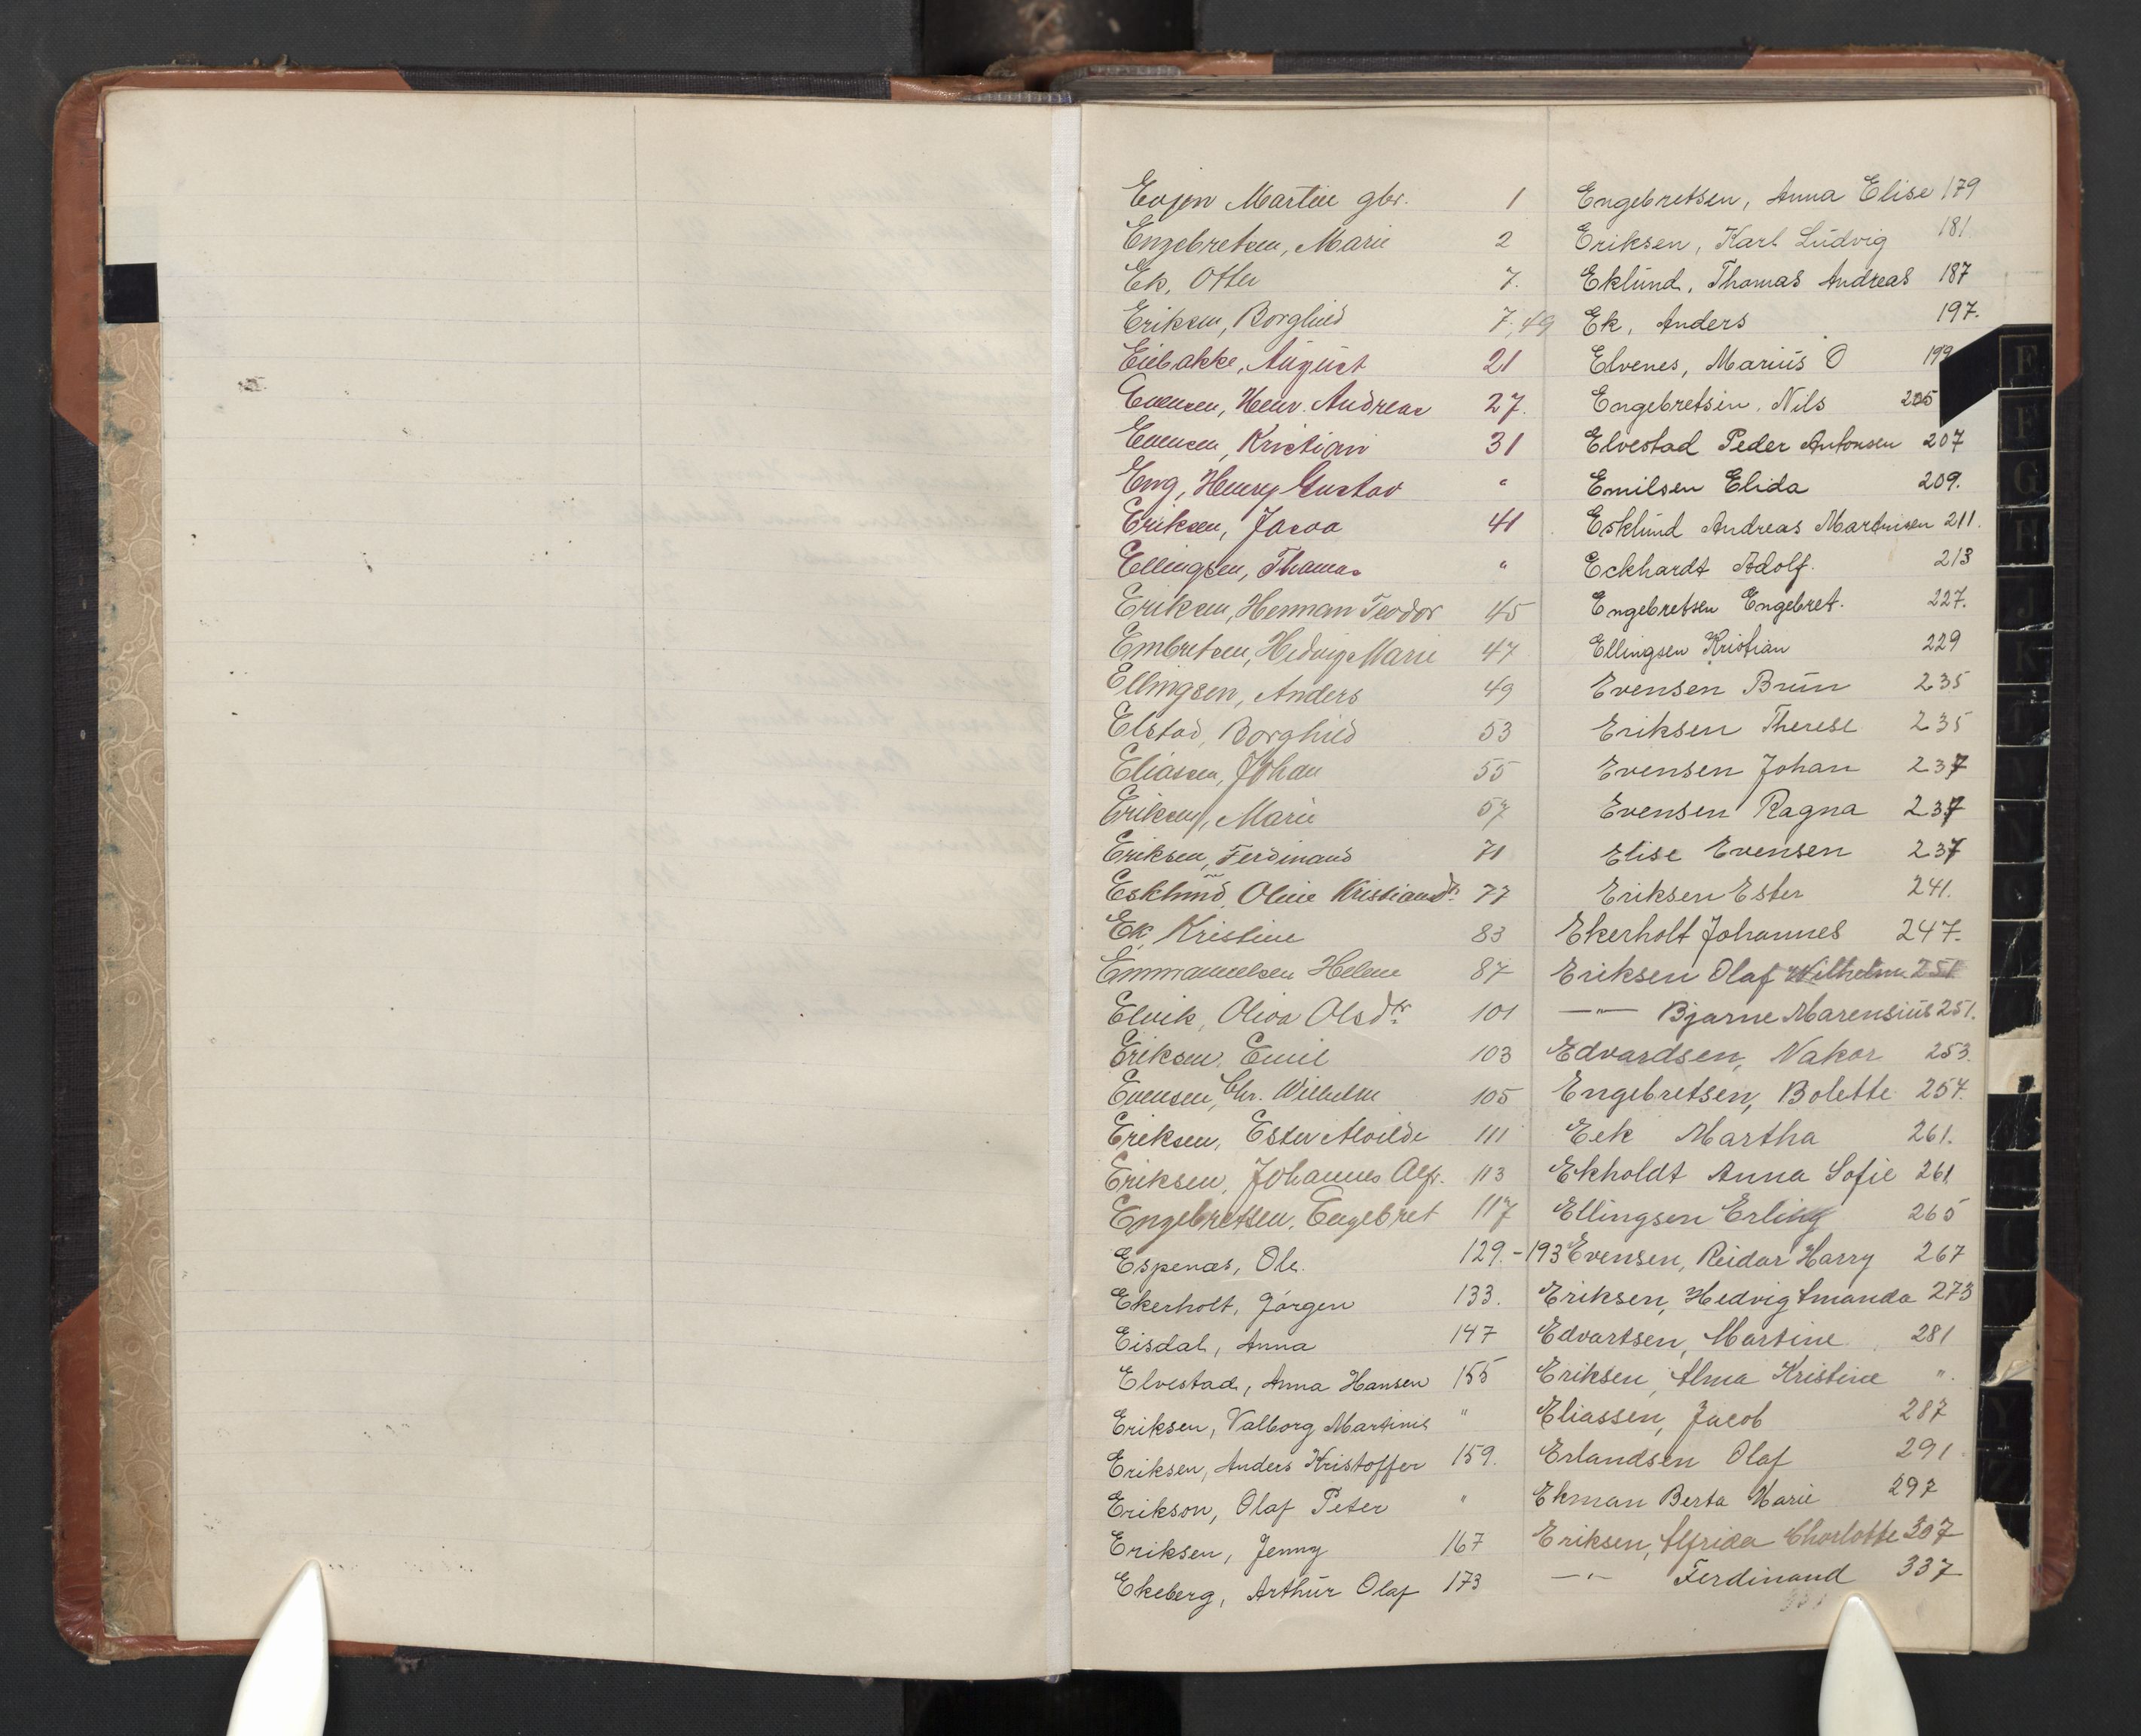 Evjen Martin gbr. 1
Engebretsen, Marie 2
Ek, Otter 7.
Eriksen, Borghild 7, 49
Eiebakke, August 21
Evensen, Henr. Andreas 27.
Evensen, Kristian 31
Eng, Henry Gustav "
Eriksen, 41
Ellingsen, Thomas "
Eriksen, Herman Teodor 45
Embretsen, Hedvig Marie 47
Ellingsen, Anders 49
Elstad, Borghild 53
Eliasen, Johan 55
Eriksen, Marie 57
Eriksen, Ferdinand 71
Esklund, Oline Kristiansdtr. 77
Ek, Kristine 83
Emmanuelsen Helene 87
Elvik, Oliva Olsdtr. 101
Eriksen, Emil 103
Evensen, Chr. Wilhelm 105
Eriksen, Ester Alvilde 111
Eriksen, Johannes Alfr. 113
Engebretsen, Engebret 117
Espenæs, Ole. 129.-193
Ekerholt, Jørgen 133.
Eisdal, Anna 147
Elvestad, Anna Hansen 155
Eriksen, Valborg Martinis "
Eriksen, Anders Kristoffer 159.
Erikson, Olaf Peter "
Eriksen, Jenny 167
Ekeberg, Arthur Olaf 173
Engebretsen, Anna Elise 179
Eriksen, Karl Ludvig 181.
Eklund, Thomas Andreas 187
Ek, Anders 197.
Elvenes, Marius O 199
Engebretsen, Nils 205
Elvestad Peder Antonsen 207
Emilsen Elida 209.
Esklund Andreas Martinisen 211.
Eckhardt Adolf. 213
Engebretsen Engebret. 227.
Ellingsen Kristian 229
Evensen Brun 235
Eriksen Therese 235
Evensen Johan 237
Evensen Ragna 237
Elise Evensen 237
Eriksen Ester 241.
Ekerholt Johannes 247.
Eriksen Olaf Wilhelm 251
—"— Bjarne Marensius 251.
Edvardsen, Nakor 253.
Engebretsen, Bolette 257.
Eek Martha 261.
Ekholdt Anna Sofie 261
Ellingsen Erling 265
Evensen, Reidar Harry 267
Eriksen, Hedvig Amanda 273
Edvartsen, Martine 281
Eriksen, Alma Kristine ".
Eliassen, Jacob 287
Erlandsen Olaf 291
Ekman Berta Marie 297
Eriksen, Alfrida Charlotte 307
—"— Ferdinand 337
F
F
G
H
J
K